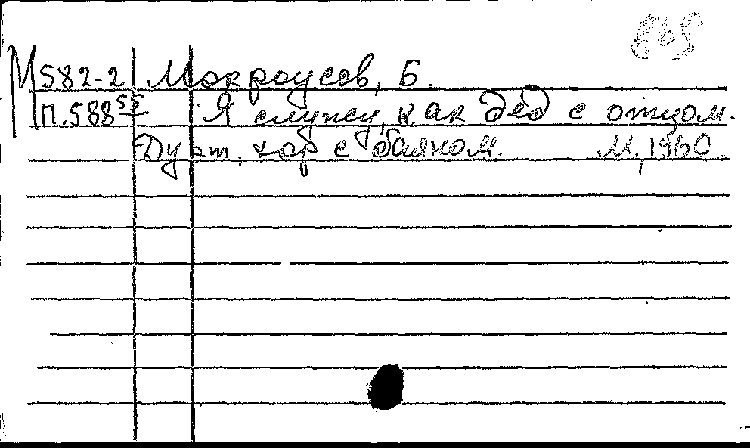 М582-2 Мокроусов, Б.
П.588 55 Я служу, как дед с отцом.
Дуэт, хор с баяном. М, 1960.